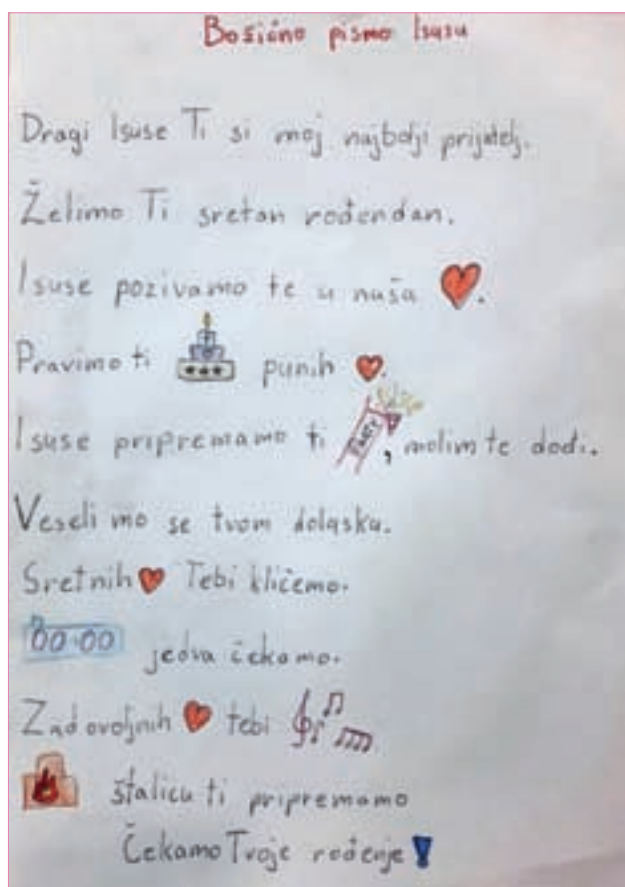 Božićno pismo Isusu
Dragi Isuse Ti si moj najbolji prijatelj.
Želimo Ti sretan rođendan.
Isuse pozivamo te u naša ❤.
Pravimo ti punih ❤.
Isuse pripremamo ti PARTY, molim te dođi.
Veselimo se tvom dolasku.
Sretnih ❤ Tebi kličemo.
00:00 jedva čekamo.
Zadovoljnih ❤ tebi
štalicu ti pripremamo
Čekamo Tvoje rođenje!